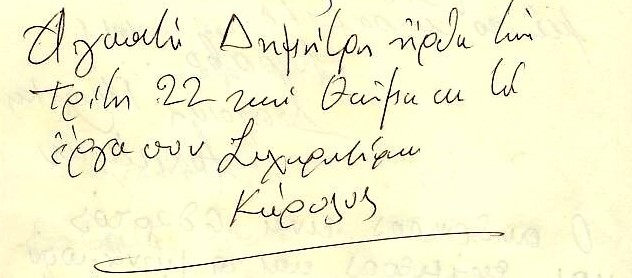 Αγαπητέ Δημήτρη ήρθα την
Τρίτη 22 και θαύμασα τα
έργα σου Συγχαρητήρια
Κάρολος